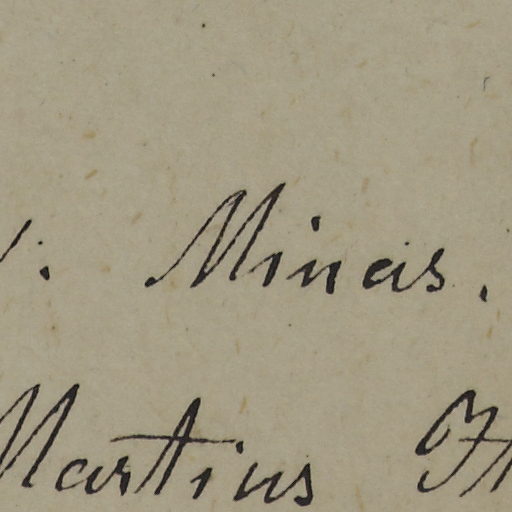 Minas.
Martius